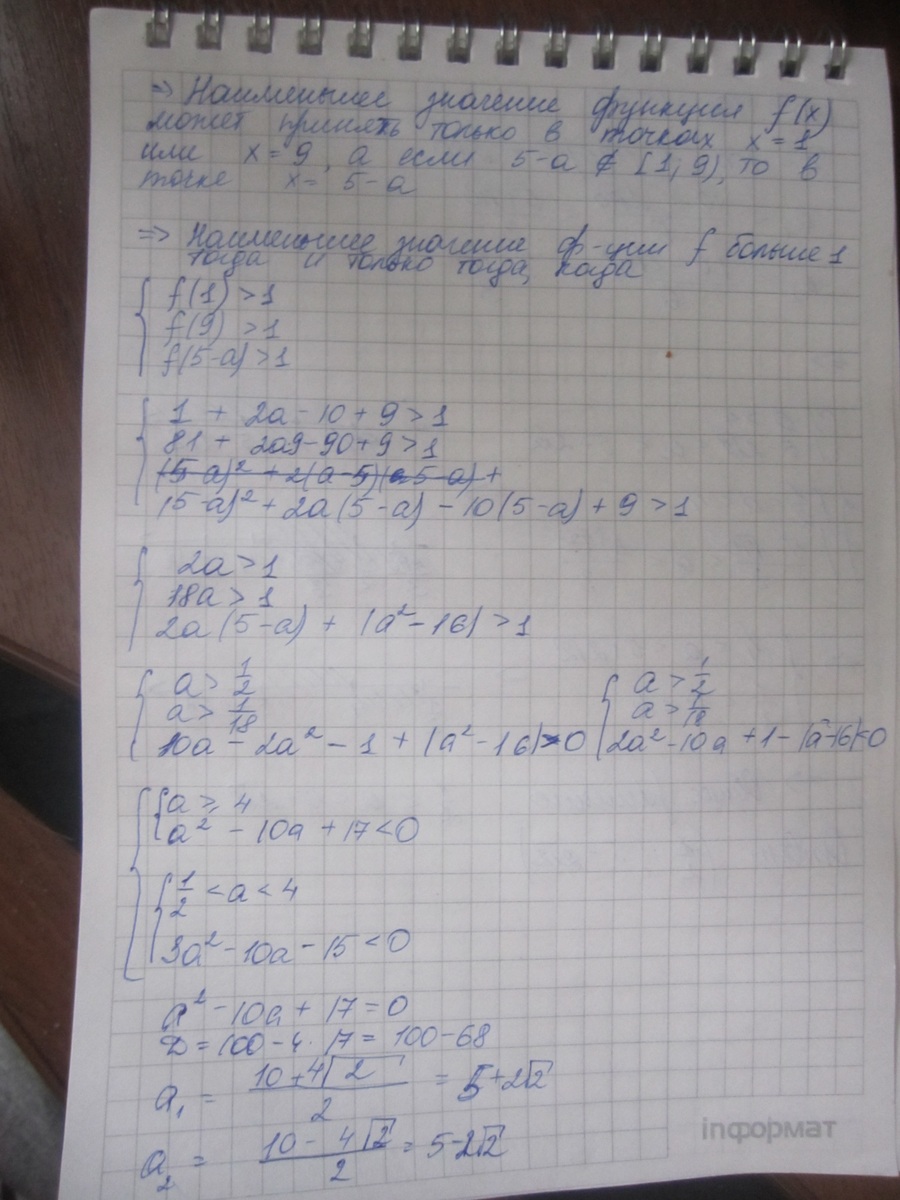 => Наименьшее значение функция f(x)
может принять только в точках x = 1
или x = 9, а если 5-a ∉ [1; 9), то в
точке x = 5-a
=> Наименьшее значение ф-ции f больше 1
тогда и только тогда, когда
{ f(1) > 1
f(9) > 1
f(5-a) > 1
{ 1 + 2a - 10 + 9 > 1
81 + 2a9 - 90 + 9 > 1
(5-a)² + 2a(5-a) - 10(5-a) + 9 > 1
{ 2a > 1
18a > 1
2a(5-a) + |a² - 16| > 1
{ a > 1/2 { a > 1/2
a > 1/18 a > 1/18
10a - 2a² - 1 + |a² - 16| > 0 2a² - 10a + 1 - |a²-16| < 0
{ { a ≥ 4
a² - 10a + 17 < 0
{ 1/2 < a < 4
3a² - 10a - 15 < 0
a² - 10a + 17 = 0
D = 100 - 4 · 17 = 100 - 68
a₁ = (10 + 4√2)/2 = 5 + 2√2
a₂ = (10 - 4√2)/2 = 5 - 2√2
інформат